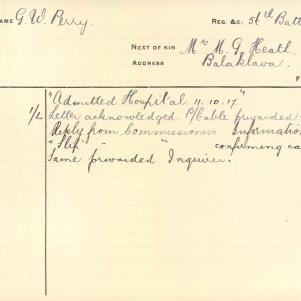 NAME G. W. Perry. REG. &c. 56th Batt
NEXT OF KIN Mrs M. G. Heath.
ADDRESS Balaklava.
"Admitted Hospital 11.10.17"
1/L Letter acknowledged. P/Cable forwarded
Reply from Commissioners Information
"Slip" " " confirming ca
Same forwarded Inquirer.